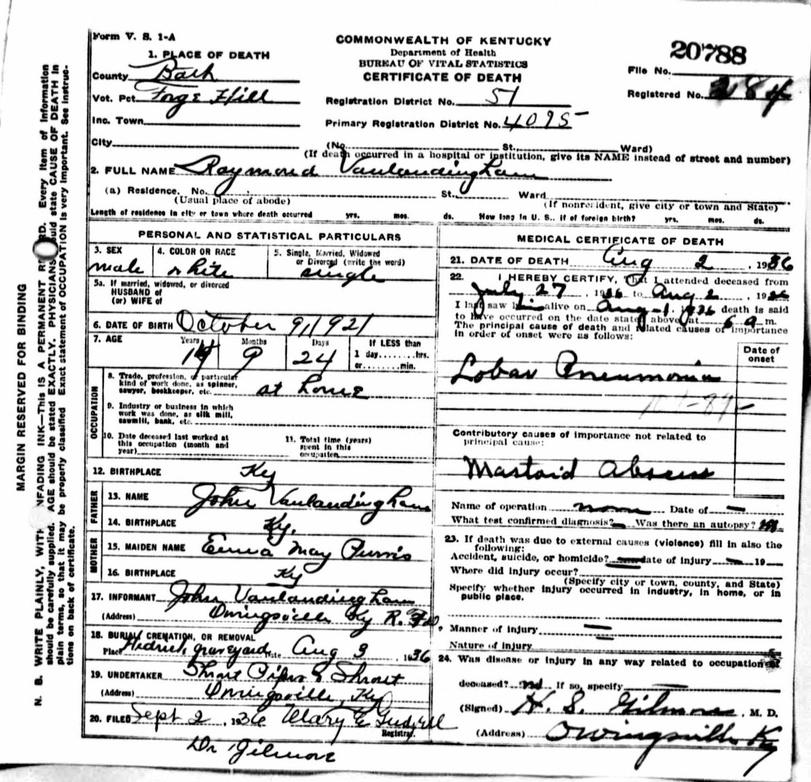 Form V. S. 1-A
COMMONWEALTH OF KENTUCKY
Department of Health
BUREAU OF VITAL STATISTICS
CERTIFICATE OF DEATH
20788
File No.
Registered No. 284
1. PLACE OF DEATH
County Bath
Vot. Pct. Forge Hill
Inc. Town
City
Registration District No. 51
Primary Registration District No. 4095
(No. St. Ward)
(If death occurred in a hospital or institution, give its NAME instead of street and number)
2. FULL NAME Raymond Vanlandingham
(a) Residence. No. St., Ward
(Usual place of abode) (If nonresident, give city or town and State)
Length of residence in city or town where death occurred yrs. mos. ds. How long in U. S., if of foreign birth? yrs. mos. ds.
PERSONAL AND STATISTICAL PARTICULARS
3. SEX 4. COLOR OR RACE 5. Single, Married, Widowed
or Divorced (write the word)
male white single
5a. If married, widowed, or divorced
HUSBAND of
(or) WIFE of
6. DATE OF BIRTH October 9, 1921
7. AGE Years Months Days If LESS than
14 9 24 1 day......hrs.
or......min.
OCCUPATION
8. Trade, profession, or particular
kind of work done, as spinner,
sawyer, bookkeeper, etc. at home
9. Industry or business in which
work was done, as silk mill,
sawmill, bank, etc.
10. Date deceased last worked at
this occupation (month and
year)
11. Total time (years)
spent in this
occupation
12. BIRTHPLACE Ky
FATHER
13. NAME John Vanlandingham
14. BIRTHPLACE Ky.
MOTHER
15. MAIDEN NAME Emma May Purvis
16. BIRTHPLACE Ky
17. INFORMANT John Vanlandingham
(Address) Owingsville Ky R.F.D.
18. BURIAL, CREMATION, OR REMOVAL
Place Hedrick graveyard Date Aug 3 1936
19. UNDERTAKER Shrout
(Address) Owingsville, Ky
20. FILED Sept 2, 1936 Mary E
Registrar.
Dr Gilmore
MEDICAL CERTIFICATE OF DEATH
21. DATE OF DEATH Aug 2, 1936
22. I HEREBY CERTIFY, That I attended deceased from
July 27 1936 to Aug 2, 1936
I last saw him alive on Aug-1, 1936 death is said
to have occurred on the date stated above, at 6 a m.
The principal cause of death and related causes of importance
in order of onset were as follows:
Date of
onset
Lobar Pneumonia
Contributory causes of importance not related to
principal cause:
Mastoid Abscess
Name of operation none Date of —
What test confirmed diagnosis? — Was there an autopsy? no
23. If death was due to external causes (violence) fill in also the
following:
Accident, suicide, or homicide? Date of injury — 19
Where did injury occur?
(Specify city or town, county, and State)
Specify whether injury occurred in industry, in home, or in
public place.
Manner of injury —
Nature of injury —
24. Was disease or injury in any way related to occupation of
deceased? no If so, specify
(Signed) H. S. Gilmore, M. D.
(Address) Owingsville Ky
MARGIN RESERVED FOR BINDING